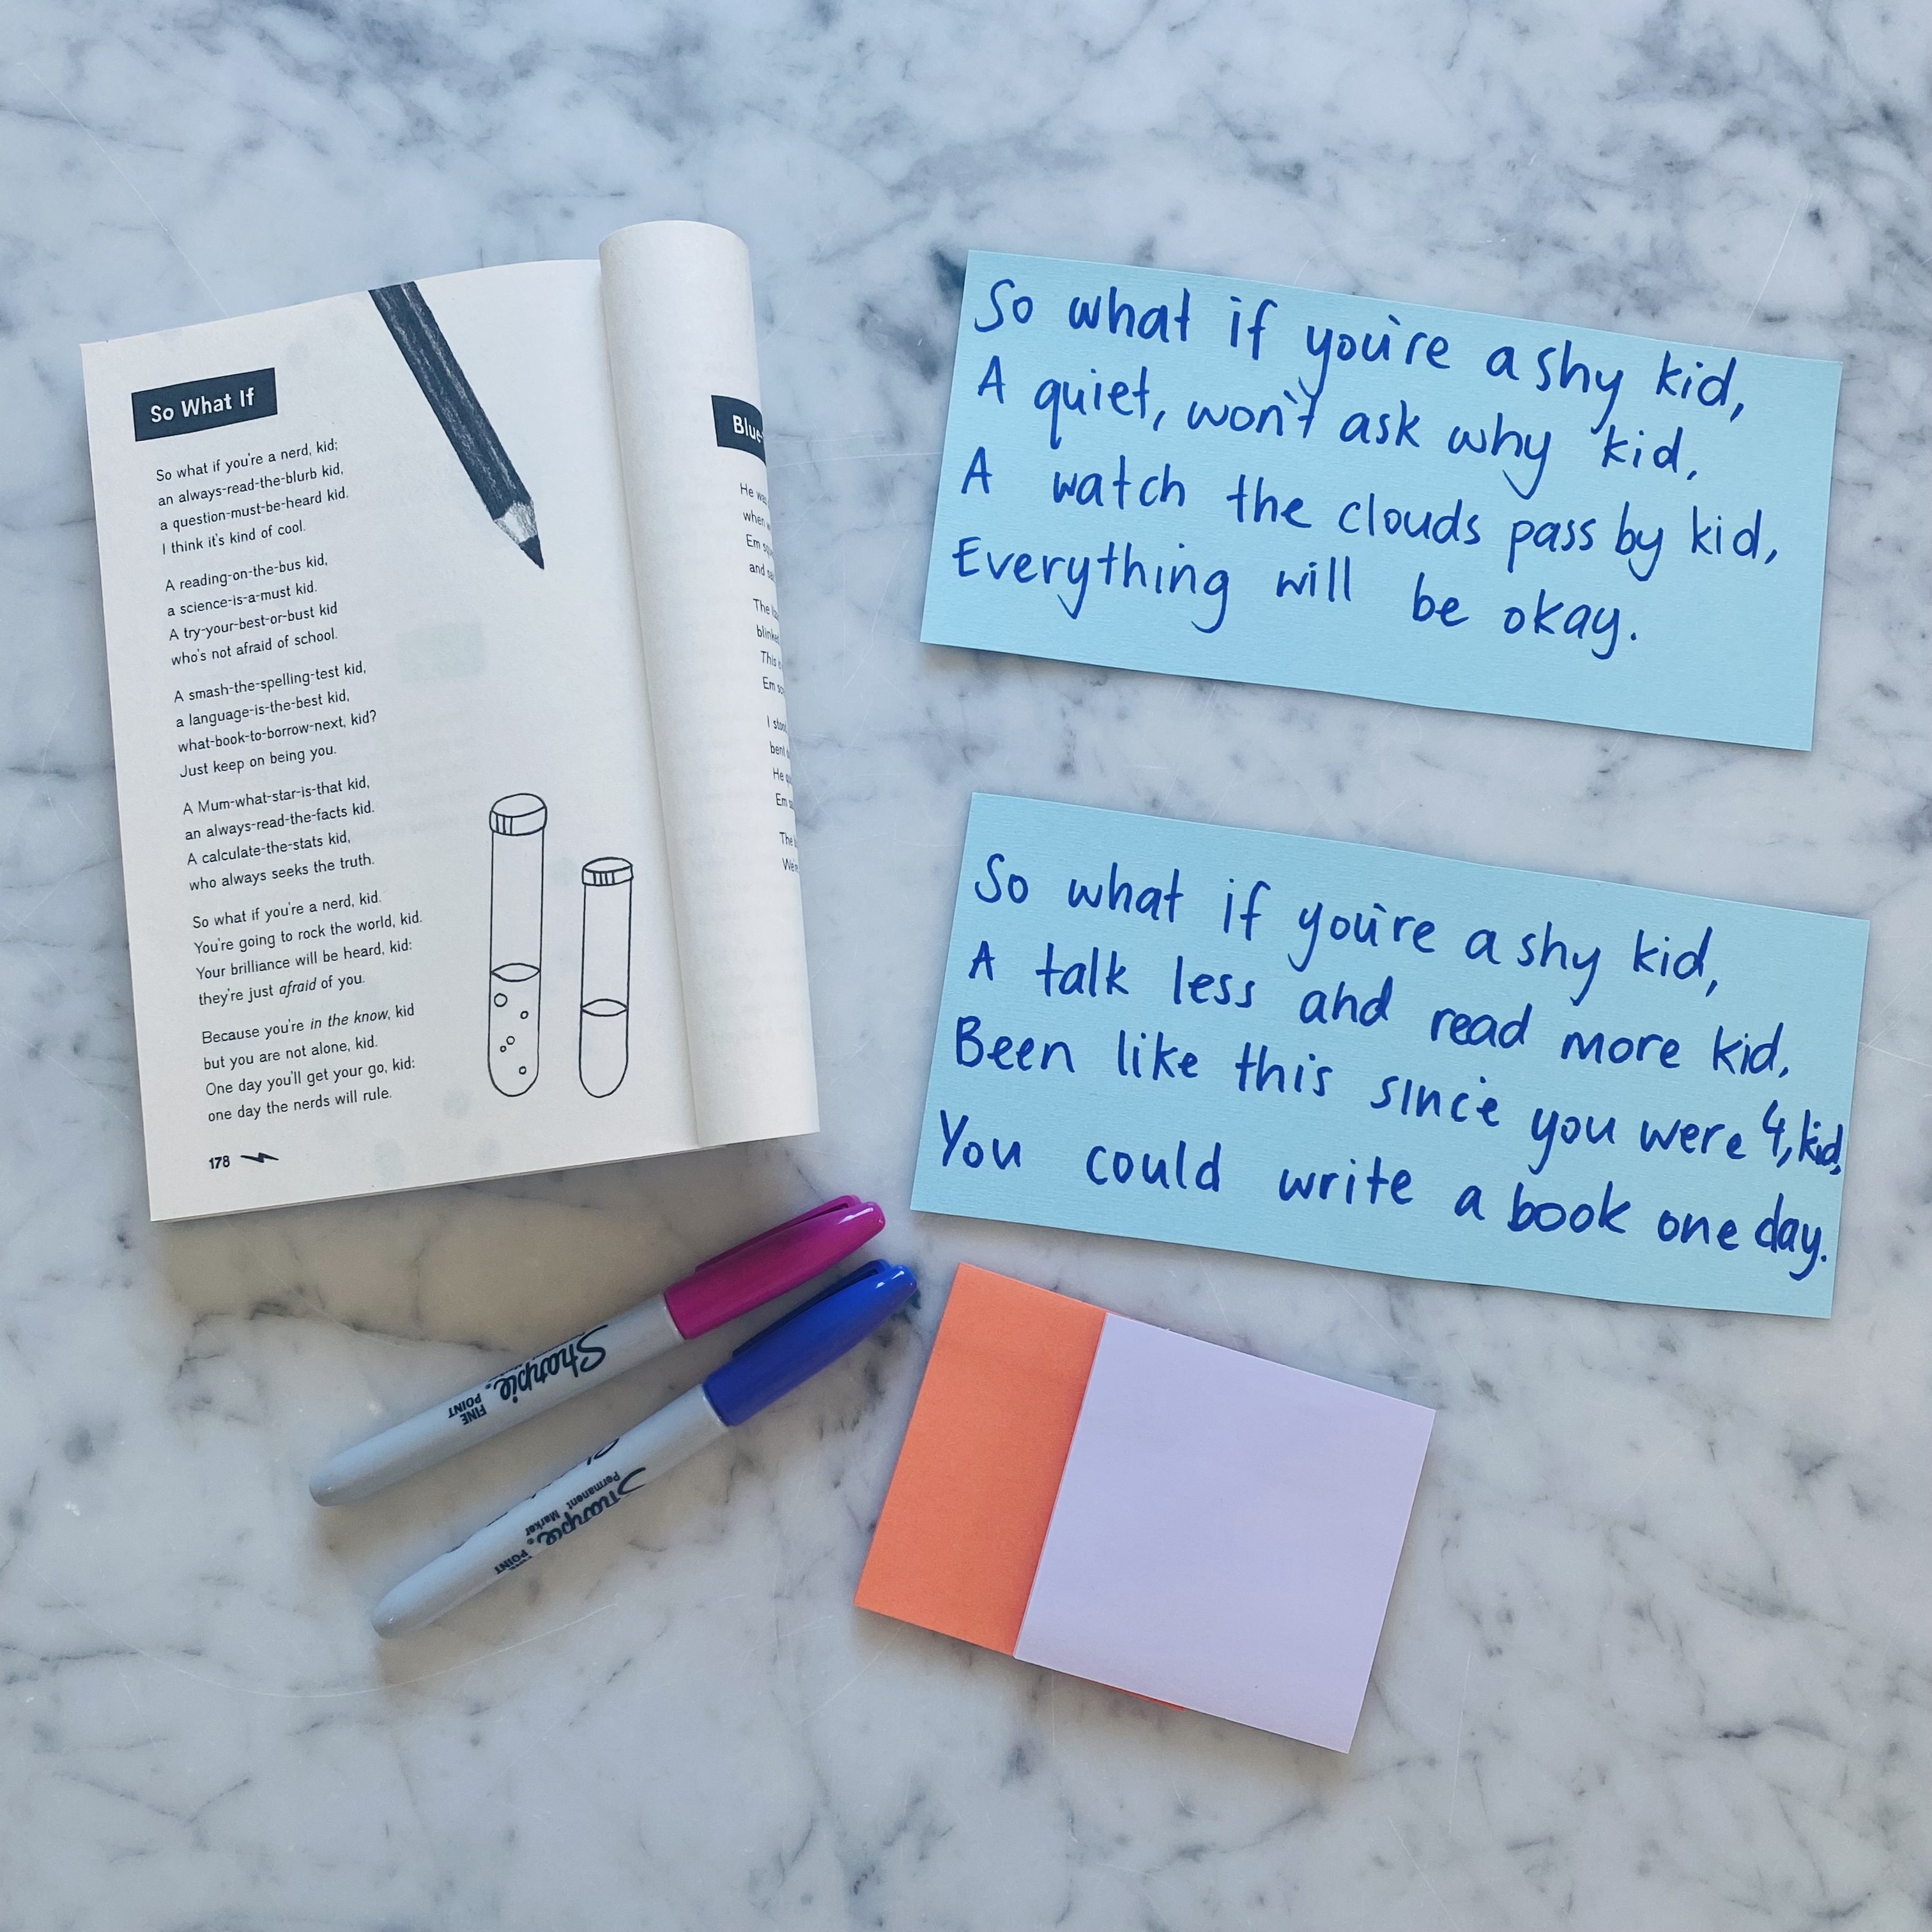 So What If
So what if you're a nerd, kid;
an always-read-the-blurb kid,
a question-must-be-heard kid.
I think it's kind of cool.
A reading-on-the-bus kid,
a science-is-a-must kid.
A try-your-best-or-bust kid
who's not afraid of school.
A smash-the-spelling-test kid,
a language-is-the-best kid,
what-book-to-borrow-next, kid?
Just keep on being you.
A Mum-what-star-is-that kid,
an always-read-the-facts kid.
A calculate-the-stats kid,
who always seeks the truth.
So what if you're a nerd, kid.
You're going to rock the world, kid.
Your brilliance will be heard, kid:
they're just afraid of you.
Because you're in the know, kid
but you are not alone, kid.
One day you'll get your go, kid:
one day the nerds will rule.
178
Blue
He
when
Em
and
The
blinked
This
Em
I
bent
He
Em
The
So what if you're a shy kid,
A quiet, won't ask why kid,
A watch the clouds pass by kid,
Everything will be okay.
So what if you're a shy kid,
A talk less and read more kid,
Been like this since you were 4, kid,
You could write a book one day.
Sharpie
FINE
POINT
Sharpie
Permanent Marker
POINT